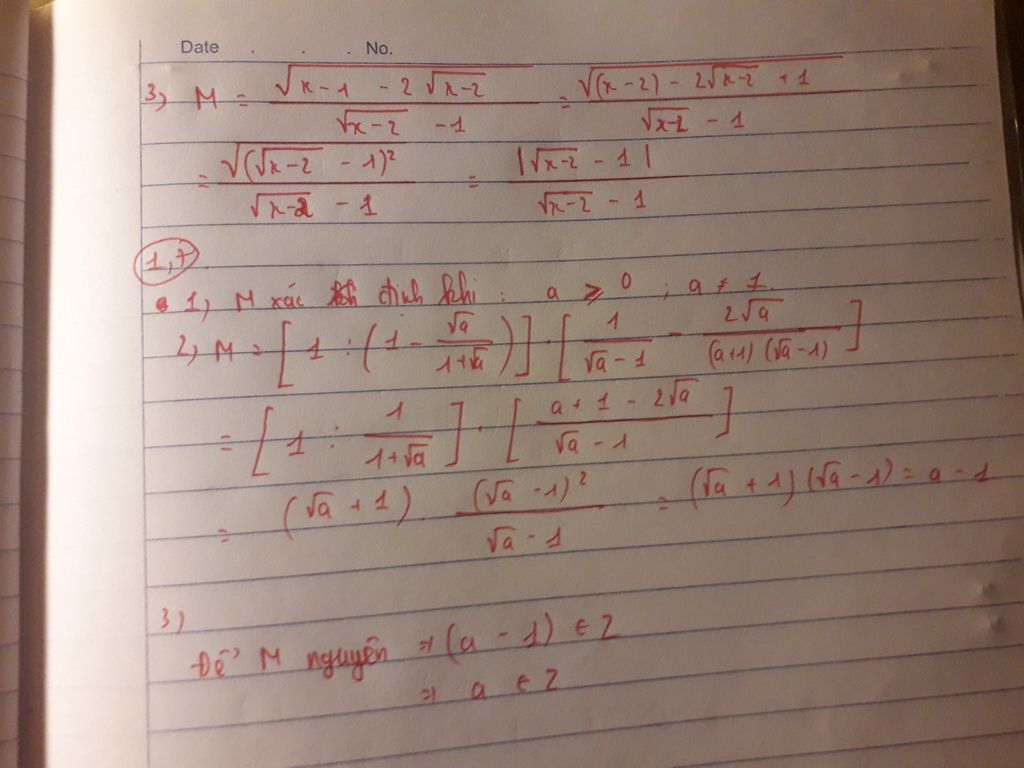 Date . . . No.
3) M = √(x-1 - 2√(x-2)) / (√(x-2) - 1) = √((x-2) - 2√(x-2) + 1) / (√(x-2) - 1)
= √((√(x-2) - 1)²) / (√(x-2) - 1) = |√(x-2) - 1| / (√(x-2) - 1)
1,7
1) M xác định khi : a ≥ 0 ; a ≠ 1.
2) M = [1 : (1 - √a / (1+√a))] . [1 / (√a - 1) - 2√a / ((a+1)(√a-1))]
= [1 : 1 / (1+√a)] . [(a + 1 - 2√a) / (√a - 1)]
= (√a + 1) . (√a - 1)² / (√a - 1) = (√a + 1)(√a - 1) = a - 1
3)
Để M nguyên ⇒ (a - 1) ∈ Z
⇒ a ∈ Z